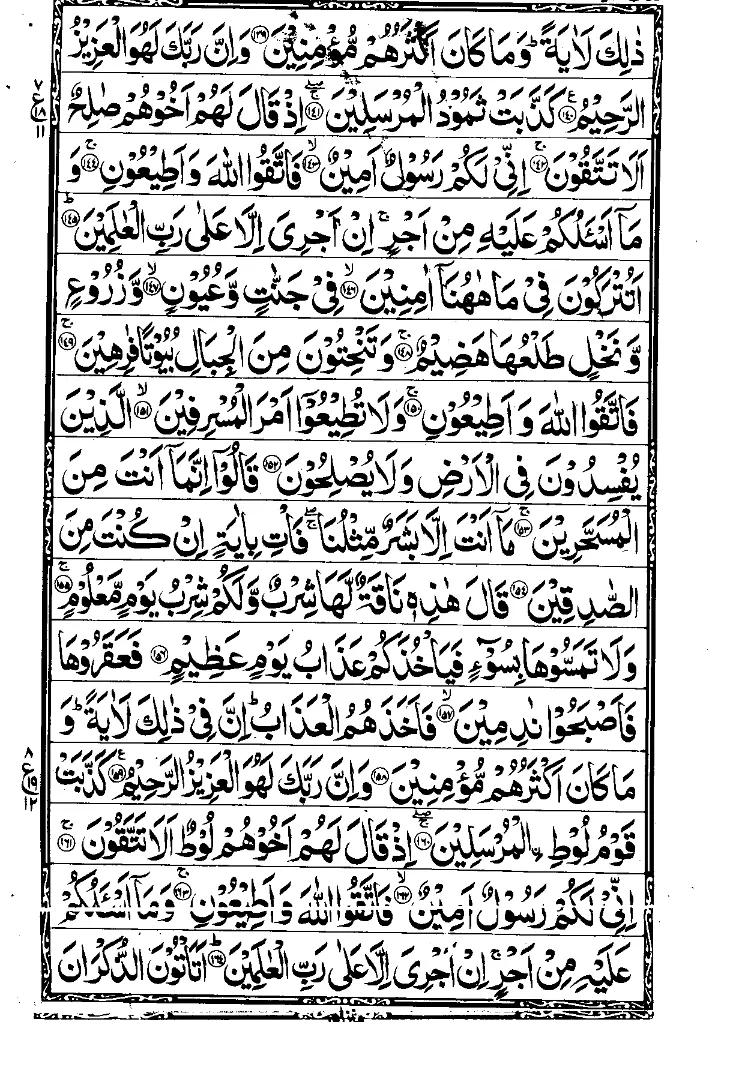 ذٰلِكَ لَاٰيَةً ؕ وَمَا كَانَ اَكْثَرُهُمْ مُّؤْمِنِيْنَ ﴿۱۳۹﴾ وَاِنَّ رَبَّكَ لَهُوَ الْعَزِيْزُ
الرَّحِيْمُ ﴿۱۴۰﴾ كَذَّبَتْ ثَمُوْدُ الْمُرْسَلِيْنَ ﴿۱۴۱﴾ اِذْ قَالَ لَهُمْ اَخُوْهُمْ صٰلِحٌ
اَلَا تَتَّقُوْنَ ﴿۱۴۲﴾ اِنِّيْ لَكُمْ رَسُوْلٌ اَمِيْنٌ ﴿۱۴۳﴾ فَاتَّقُوا اللّٰهَ وَاَطِيْعُوْنِ ﴿۱۴۴﴾ وَ
مَاۤ اَسْـَٔلُكُمْ عَلَيْهِ مِنْ اَجْرٍ ۚ اِنْ اَجْرِيَ اِلَّا عَلٰى رَبِّ الْعٰلَمِيْنَ ﴿۱۴۵﴾
اَتُتْرَكُوْنَ فِيْ مَا هٰهُنَاۤ اٰمِنِيْنَ ﴿۱۴۶﴾ فِيْ جَنّٰتٍ وَّعُيُوْنٍ ﴿۱۴۷﴾ وَّزُرُوْعٍ
وَّنَخْلٍ طَلْعُهَا هَضِيْمٌ ﴿۱۴۸﴾ وَتَنْحِتُوْنَ مِنَ الْجِبَالِ بُيُوْتًا فٰرِهِيْنَ ﴿۱۴۹﴾
فَاتَّقُوا اللّٰهَ وَاَطِيْعُوْنِ ﴿۱۵۰﴾ وَلَا تُطِيْعُوْۤا اَمْرَ الْمُسْرِفِيْنَ ﴿۱۵۱﴾ الَّذِيْنَ
يُفْسِدُوْنَ فِي الْاَرْضِ وَلَا يُصْلِحُوْنَ ﴿۱۵۲﴾ قَالُوْۤا اِنَّمَاۤ اَنْتَ مِنَ
الْمُسَحَّرِيْنَ ﴿۱۵۳﴾ مَاۤ اَنْتَ اِلَّا بَشَرٌ مِّثْلُنَا ۖۚ فَاْتِ بِاٰيَةٍ اِنْ كُنْتَ مِنَ
الصّٰدِقِيْنَ ﴿۱۵۴﴾ قَالَ هٰذِهٖ نَاقَةٌ لَّهَا شِرْبٌ وَّلَكُمْ شِرْبُ يَوْمٍ مَّعْلُوْمٍ ﴿۱۵۵﴾
وَلَا تَمَسُّوْهَا بِسُوْٓءٍ فَيَاْخُذَكُمْ عَذَابُ يَوْمٍ عَظِيْمٍ ﴿۱۵۶﴾ فَعَقَرُوْهَا
فَاَصْبَحُوْا نٰدِمِيْنَ ﴿۱۵۷﴾ فَاَخَذَهُمُ الْعَذَابُ ؕ اِنَّ فِيْ ذٰلِكَ لَاٰيَةً ؕ وَ
مَا كَانَ اَكْثَرُهُمْ مُّؤْمِنِيْنَ ﴿۱۵۸﴾ وَاِنَّ رَبَّكَ لَهُوَ الْعَزِيْزُ الرَّحِيْمُ ﴿۱۵۹﴾ كَذَّبَتْ
قَوْمُ لُوْطِ ۨالْمُرْسَلِيْنَ ﴿۱۶۰﴾ اِذْ قَالَ لَهُمْ اَخُوْهُمْ لُوْطٌ اَلَا تَتَّقُوْنَ ﴿۱۶۱﴾
اِنِّيْ لَكُمْ رَسُوْلٌ اَمِيْنٌ ﴿۱۶۲﴾ فَاتَّقُوا اللّٰهَ وَاَطِيْعُوْنِ ﴿۱۶۳﴾ وَمَاۤ اَسْـَٔلُكُمْ
عَلَيْهِ مِنْ اَجْرٍ ۚ اِنْ اَجْرِيَ اِلَّا عَلٰى رَبِّ الْعٰلَمِيْنَ ﴿۱۶۴﴾ اَتَاْتُوْنَ الذُّكْرَانَ
۷
ع ۱۸
۱۱
۸
ع ۱۹
۱۲